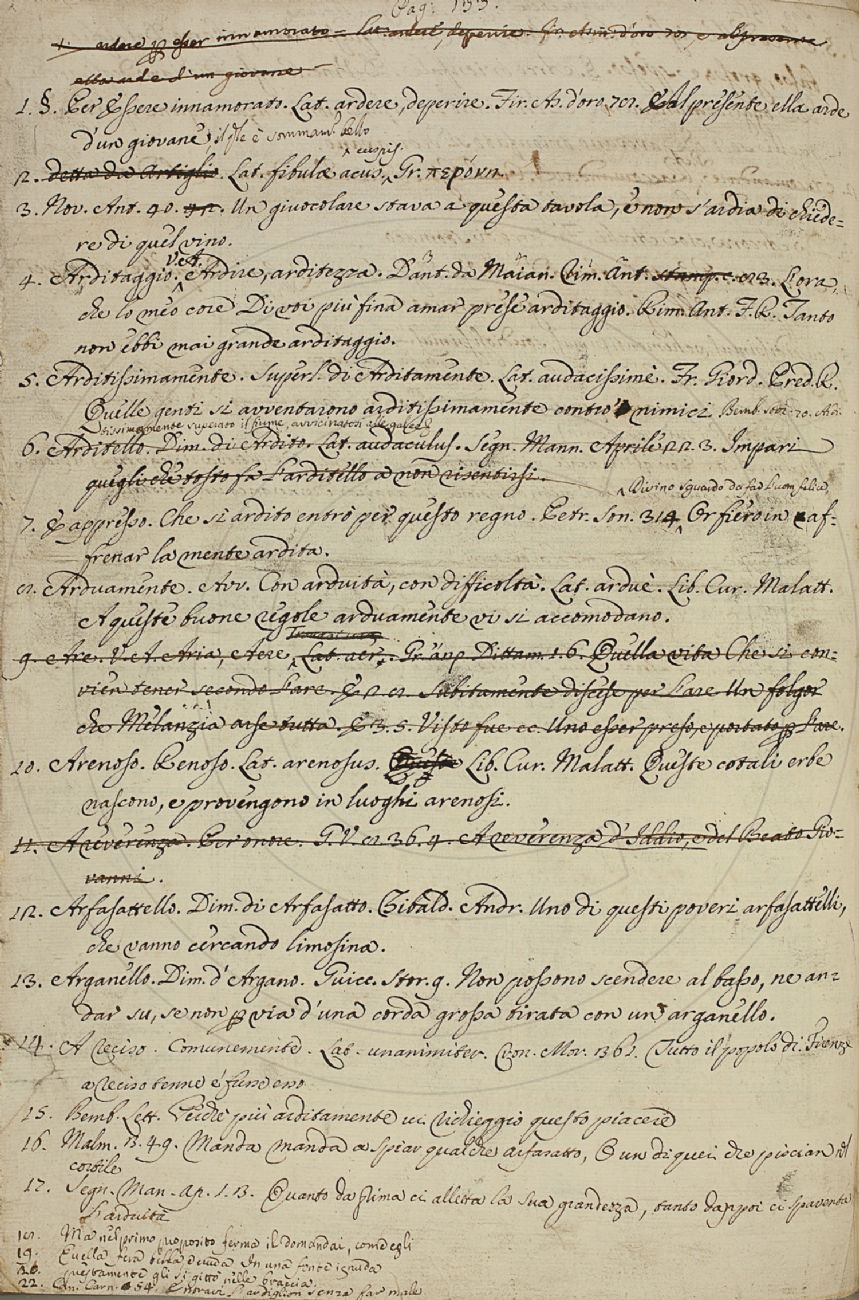 Pag. 133.
ardere p esser innamorato = Lat. ardere, deperire. Fir. Asin. d'oro 78, e al presente
ella arde d'un giovane
1. §. Per Essere innamorato. Lat. ardere, deperire. Fir. As. d'oro 78. E Al presente ella arde
d'un giovane, il qle è sommamte bello
cuspis.
2. detta da Artiglio. Lat. fibulæ acus, Gr. περόνη.
3. Nov. Ant. 40. 42. Un giuocolare stava a questa tavola, e non s'ardia di chiede-
re di quel vino.
V. A.
4. Arditaggio. Ardire, arditezza. Dant. da Maian. Rim. Ant. stamp. c. 83. L'ora,
che lo meo core Di voi più fina amar prese arditaggio. Rim. Ant. F. R. Tanto
non ebbi mai grande arditaggio.
5. Arditissimamente. Superl. di Arditamente. Lat. audacissimè. Fr. Giord. Pred. R.
Quelle genti si avventarono arditissimamente contro nimici Bemb. stor. 10. Ardi-
tissimamente superato il fiume, avvicinatosi alle galee
6. Arditello. Dim. di Ardito. Lat. audaculus. Segn. Mann. Aprile 22. 3. Impari
quegli che tosto fa l'arditello a non risentirsi.
Divino sguardo da far l'uom felice
7. E appresso. Che sì ardito entrò per questo regno. Petr. Son. 314. Or fiero in af-
frenar la mente ardita.
8. Arduamente. Avv. Con arduità, con difficoltà. Lat. arduè. Lib. Cur. Malatt.
A queste buone regole arduamente vi si accomodano.
9. Are. V. A. Aria, Aere, Lat. aer, Gr. ἀήρ Dittam. 1. 6. Quella vita Che si con-
vien tener secondo l'are. E 2. 8. Subitamente discese per l'are Un folgor
che Melanzia arse tutta. E 3. 5. Visto fue ec. Uno esser preso, e portato p l'are.
10. Arenoso. Renoso. Lat. arenosus. Lib. Cur. Malatt. Queste cotali erbe
nascono, e provengono in luoghi arenosi.
11. A reverenza. Per onore. G. V. 8. 36. 4. A reverenza d'Iddio, e del Beato Gio-
vanni.
12. Arfasattello. Dim. di Arfasatto. Zibald. Andr. Uno di questi poveri arfasattelli,
che vanno cercando limosina.
13. Arganello. Dim. d'Argano. Guicc. Stor. 9. Non possono scendere al basso, ne an-
dar su, se non p via d'una corda grossa tirata con un arganello.
14. A reciso. Comunemente. Lat. unanimiter. Cron. Mor. 361. Tutto il popolo di Firenze
a reciso tenne
15. Bemb. Lett. più arditamente vi richieggio questo piacere
16. Malm. 2. 49. Manda manda a spiar qualche arfasatto, O un di quei che piscian nel
cortile
17. Segn. Man. Ap. 1. 2. Quanto da prima ci alletta la sua grandezza, tanto dappoi ci spaventa
l'arduità
18. Ma nel primo proposito ferma il domandai, com'egli
19. Quella fera in una fonte ignuda
questamente gli si gittò nelle braccia.
22. Can. Carn. 54. senza far male